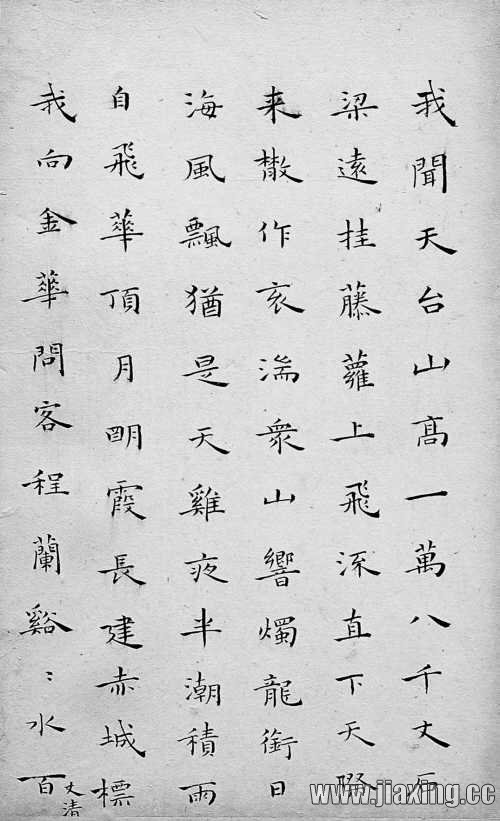 我聞天台山高一萬八千丈石
梁遠挂藤蘿上飛淙直下天際
来散作哀湍衆山響燭龍銜日
海風飄猶是天雞夜半潮積雨
自飛華頂月明霞長建赤城標
我向金華問客程蘭谿〻水百
丈清
www.jiaxing.cc